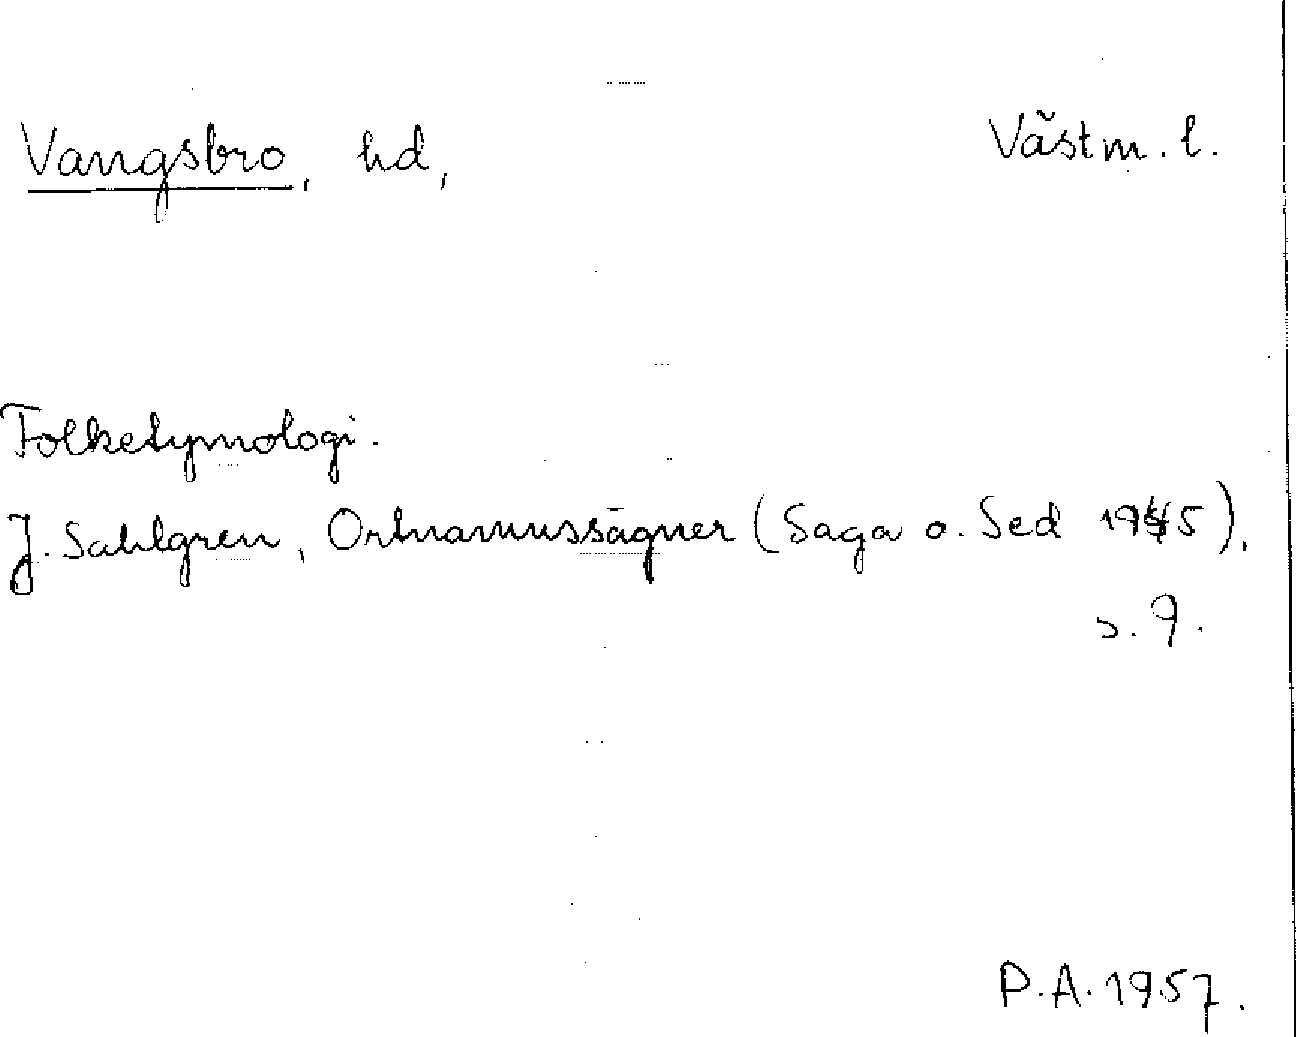 Vangsbro, hd, Västm. l.
Folketymologi.
J. Sahlgren, Ortnamnssägner (Saga o. Sed 1945),
s. 9.
P.A. 1957.